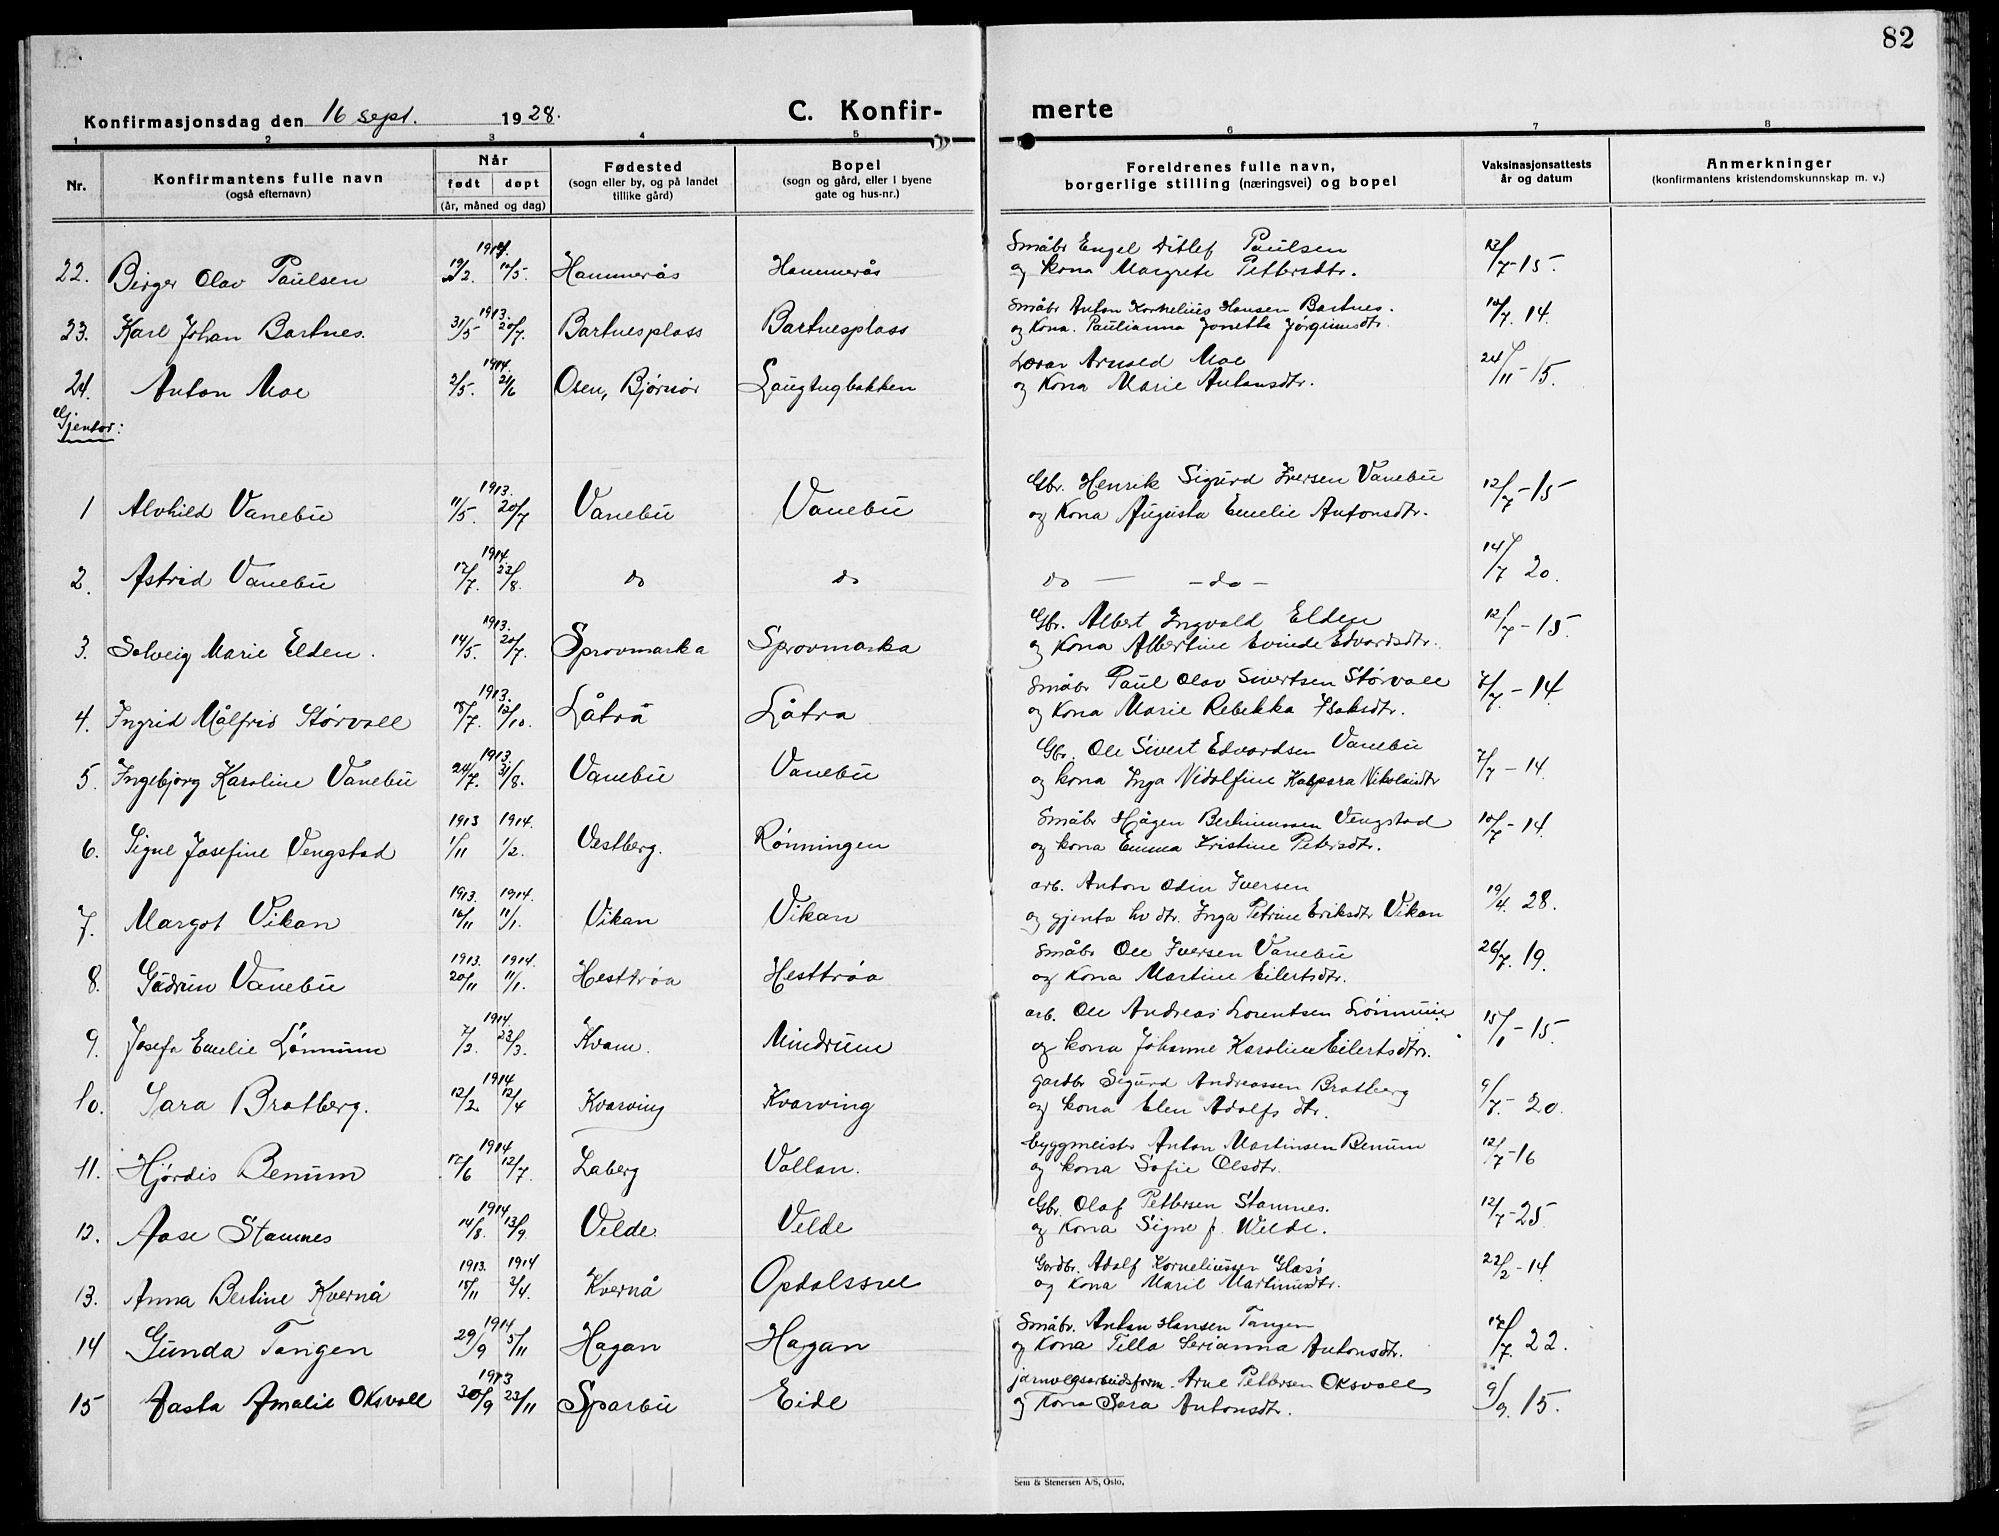 82
Konfirmasjonsdag den 16 sept. 1928.
C. Konfir-
merte
1 2 3 4 5 6 7 8
Nr.
Konfirmantens fulle navn
(også efternavn)
Når
født døpt
(år, måned og dag)
Fødested
(sogn eller by, og på landet
tillike gård)
Bopel
(sogn og gård, eller i byene
gate og hus-nr.)
Foreldrenes fulle navn,
borgerlige stilling (næringsvei) og bopel
Vaksinasjonsattests
år og datum
Anmerkninger
(konfirmantens kristendomskunnskap m. v.)
22. Birger Olav Paulsen Hammerås Hammerås Småbr Engel Ditlef Paulsen
og kona Margrete Pettersdtr.
23. Karl Johan Bartnes. 1913. 31/5 20/7. Bartnesplass Bartnesplass Småbr Anton Kornelius Hansen Bartnes. 14.
og Kona. Paulianna Jonetta Jørginusdtr.
24. Anton Moe 1914. 2/5. 21/6 Osen, Bjørnør Laugtugbakken Lærar Arnold Moe 24/11-15.
og Kona Marie Antonsdtr.
Gjentor:
1 Alvhild Vanebu 1913. 11/5. 20/7 Vanebu Vanebu Gbr. Henrik Sigurd Iversen Vanebu 12/7-15
og Kona Augusta Emelie Antonsdtr.
2. Astrid Vanebu 1914. 17/7. 23/8. do do do — -do- 14/7 20.
3. Solveig Marie Elden. 1913. 14/5. 20/7. Sprovmarka Sprovmarka Gbr. Albert Ingvald Elden 12/7-15.
og Kona Albertine Evinde Edvardsdtr.
4. Ingrid Målfrid Størvoll 1913. 18/7. 12/10. Låtrå Låtra Småbr Paul Olav Sivertsen Størvoll 7/7-14
og Kona Marie Rebekka Isaksdtr.
5. Ingebjørg Karoline Vanebu 1913. 24/7. 31/8. Vanebu Vanebu Gbr. Ole Sivert Edvardsen Vanebu 7/7-14.
og kona Inga Nidolfine Kaspara Nikolaisdtr
6. Signe Josefine Vengstad 1913 1914. 1/11 1/2. Vestberg. Rønningen Småbr Hågen Vengstad 10/7-14.
og kona Emma Kristine Petersdtr.
7. Margot Vikan 1913. 1914. 16/11 11/1. Vikan Vikan arb. Anton Odin Iversen 19/4. 28.
og gjenta hv dtr. Inga Petrine Eriksdtr Vikan
8. Gudrun Vanebu 1913. 1914. 20/11 11/1. Hesttrøa Hesttrøa Småbr Ole Iversen Vanebu 26/7. 19.
og Kona Martine Eilertsdtr.
9. Josefa Emelie Lønnum 1914. 7/2. 23/3. Kvam. Mindrum arb. Ole Andreas Lorentsen Lønnum 15/1-15.
og kona Johanne Karoline Eilertsdtr.
10. Sara Bratberg. 1914 12/2 12/4 Kvarving Kvarving gardbr Sigurd Andreassen Bratberg 9/7.-20.
og kona Elen Adolfsdtr.
11. Hjørdis Benum 1914 12/7. Laberg Vollan. byggmeister Anton Martinsen Benum 12/7-16
og kona Sofie Olsdtr.
12. Aase Stamnes 1914 14/8. 13/9. Velde. Velde Gbr. Olaf Pettersen Stamnes. 12/7-25.
og Kona Signe f. Wilde.
13. Anna Bertine Kvernå 1913. 1914 15/11 2/4. Kvernå Opdalssve Gardbr. Adolf Korneliussen Glasø 22/2-14.
og Kona Marit Martinusdtr.
14 Gunda Tangen 1914 29/9 5/11 Hagan Hagan Småbr. Anton Hansen Tangen 17/7. 22.
og Kona Tilla Serianna Antonsdtr.
15 Aasta Amalie Oksvoll 1913 30/9 23/11 Sparbu Eide jarnvegsarbeidsform. Arne Pettersen Oksvoll 9/9. 15.
og Kona Sara Antonsdtr.
Sem & Stenersen A/S, Oslo.